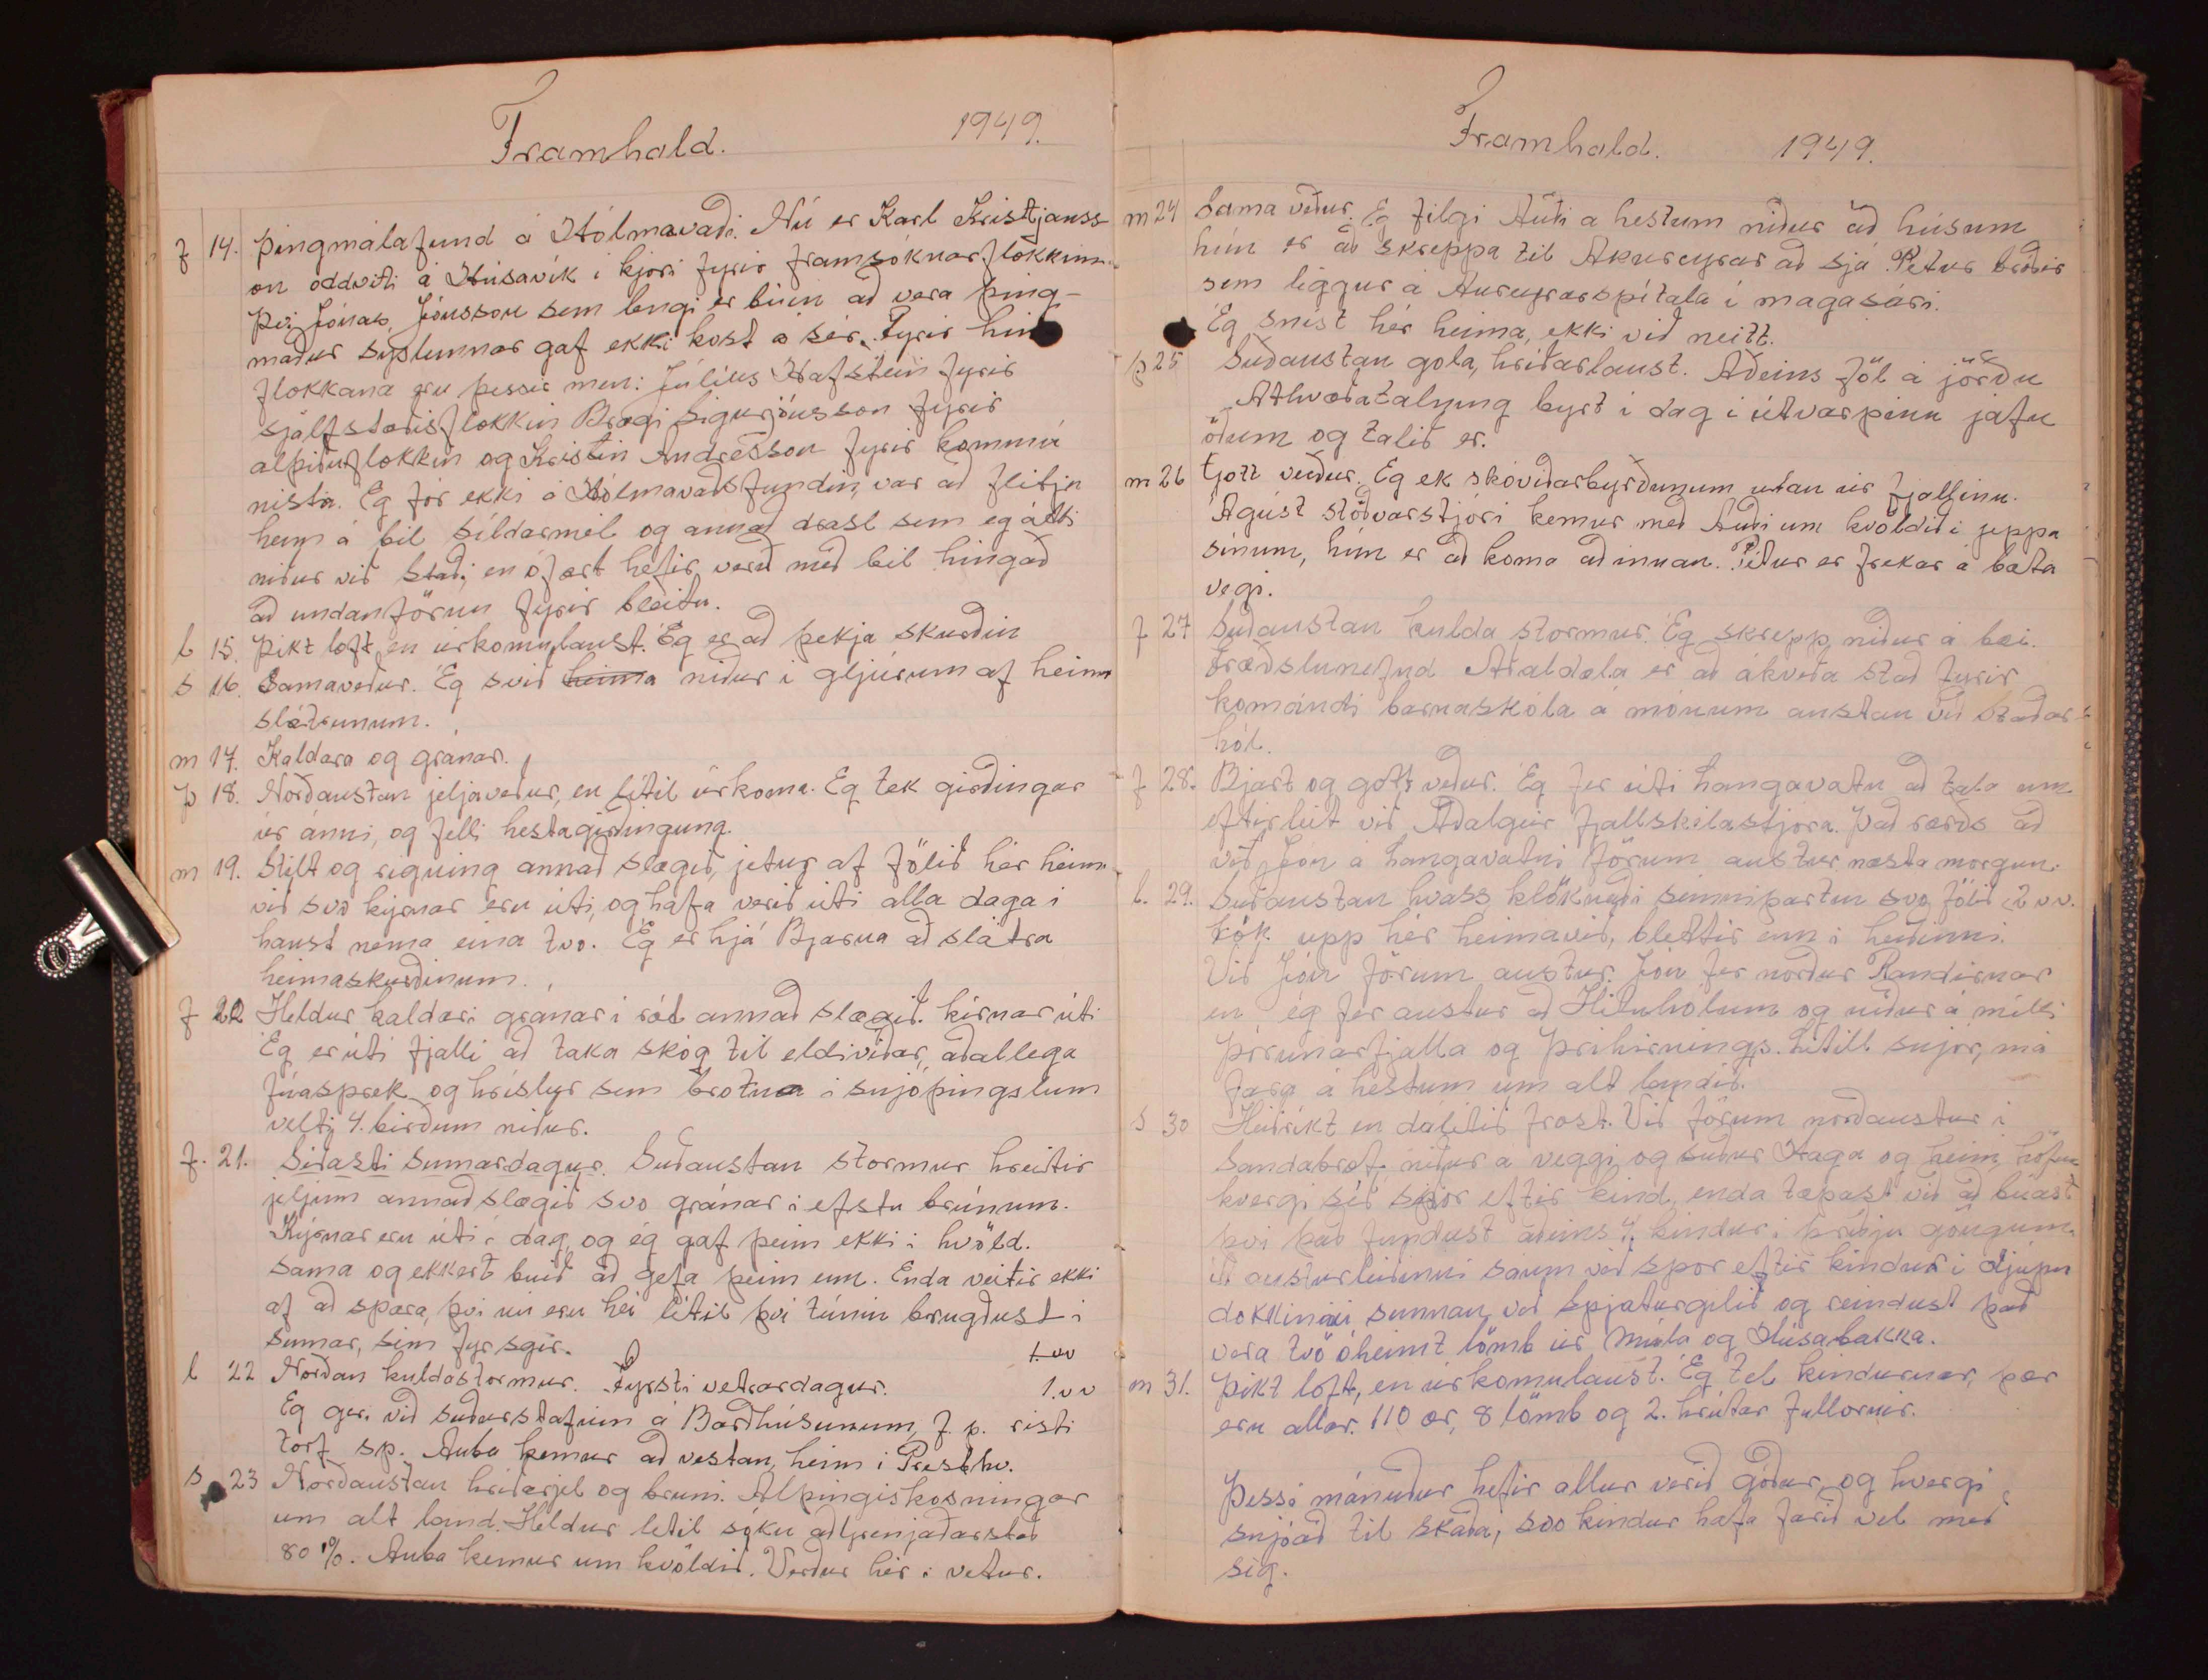 Framhald. 1949.
f 14. Þingmálafund á Hólmavaði. Nú er Karl Kristjanss
on oddviti á Húsavík i kjöri fyrir framsóknarflokkinn
því Jónas Jónsson sem lengi er búin að vera þing-
maður syslunnar gaf ekki kost á sér. Fyrir hina
flokkana eru þessir men: Júlíus Hafstein fyrir
sjálfstæðisflokkin Bragi Sigurjónsson fyrir
alþiðuflokkin og Kristin Andresson fyrir kommú
nista. Eg fór ekki á Hólmavaðsfundin, var að flitja
heim á bíl síldarmél og annað drasl sem eg átti
niður við Staði, en ófært hefir verið með bíl hingað
að undanförnu fyrir bleitu.
l 15. Þikt loft, en úrkomulaust. Eg er að þekja skurðin
s 16. Samaveður. Eg svið heima niður i gljúrum af heima
slátrunum.
m 17. Kaldara og gránar.
þ 18. Norðaustan jeljaveður, en lítil úrkoma. Eg tek girðingar
úr ánni, og felli hestagirðinguna.
m 19. Stilt og rigning annað slagið, jetur af fölið hér heima
við svo kýrnar eru úti, og hafa verið úti alla daga i
haust nema eina tvo. Eg er hjá Bjarna að slátra
heimaskurðinum.
f 20 Heldur kaldari gránar i rót annað slagið. kírnar úti
Eg er úti fjalli að taka skóg til eldiviðar, aðallega
fúasprek og hríslur sem brotna i snjóþingslum
velti 4. birðum niður.
f. 21. Siðasti sumardagur. Suðaustan stormur hreitir
jeljum annað slagið svo gránar i efstu brúnum.
Kýrnar eru úti i dag, og ég gaf þeim ekki i kvöld.
sama og ekkert buið að gefa þeim enn. Enda veitir ekki
af að spara, því nú eru hei lítil því túnin brugðust i
sumar, sim fyr sgir.
1.vv
l 22 Norðan kuldastormur. Fyrsti vetrardagur. 1.vv
Eg ger við suðurstafnin á Barðhúsunum, f. p. risti
torf sp. Auba kemur að vestan, heim i Presthv.
s 23 Norðaustan hriðarjel og bruni. Alþingiskosningar
um alt land. Heldur létil sóku að Grenjaðarstað
80%. Auba kemur um kvöldið. Verður hér i vetur.
Framhald. 1949.
m 24 Sama veður. Eg filgi Auði a hestum niður að húsum
hún er að skreppa til Akureyrar að sjá Petur bróðir
sem liggur á Aureyrarspítala i magasári.
Eg snést hér heima, ekki við neitt.
þ 25 Suðaustan gola, hríðarlaust. Aðeins föl á jörðu
Athvæðatalning byrt i dag i útvarpinu jafn
óðum og talið er.
m 26 Gott veður. Eg ek skóviðarbyrðunum utan úr fjallinu.
Agúst stöðvarstjóri kemur með Auði um kvöldið i jeppa
sínum, hún er að koma að innan. Pétur er frekar á bata
vegi.
f 27 Suðaustan kulda stormur. Eg skrepp niður á bæi.
Fræðslunefnd Aðaldæla er að ákveða stað fyrir
komándi barnaskóla á mónum austan við Staðar-
hól.
f 28. Bjart og gott veður. Eg fer úti Langavatn að tala um
eftirleit við Aðalgeir fjallskilastjóra. Það ræðs að
við Jón á Langavatni förum austur næsta morgun.
l. 29. Suðaustan hvass klöknaði seinnipartin svo fölið 2 vv.
tók upp hér heimavið, blettir enn i heiðinni.
Við Jón förum austur. Jón fer norður Randirnar
en ég fer austur að Hituhólum og niður á milli
Þórunarfjalla og Þríhirnings. Lítill snjór, má
fara á hestum um alt landið.
s 30 Heiðríkt en dálítið frost. Við förum norðaustur i
Sandabrot, niður a veggi og suður Haga og heim, höfum
hvergi séð spor eftir kind, enda tæpast við að búast
því það fundust aðeins 4 kindur i þriðju göngum.
Á austurleiðinni sáum við spor eftir kindur i djúpu
dokkinni sunnan við Spjaturgilið og reindust það
vera tvö óheimt lömb úr Múla og Húsabakka.
m 31. Þikt loft, en úrkomulaust. Eg tel kindurnar, þær
eru allar. 110 ær, 8 lömb og 2. hrútar fullornir.
Þessi mánuður hefir allur verið góður, og hvergi
snjóað til skaða, svo kindur hafa farið vel með
sig.